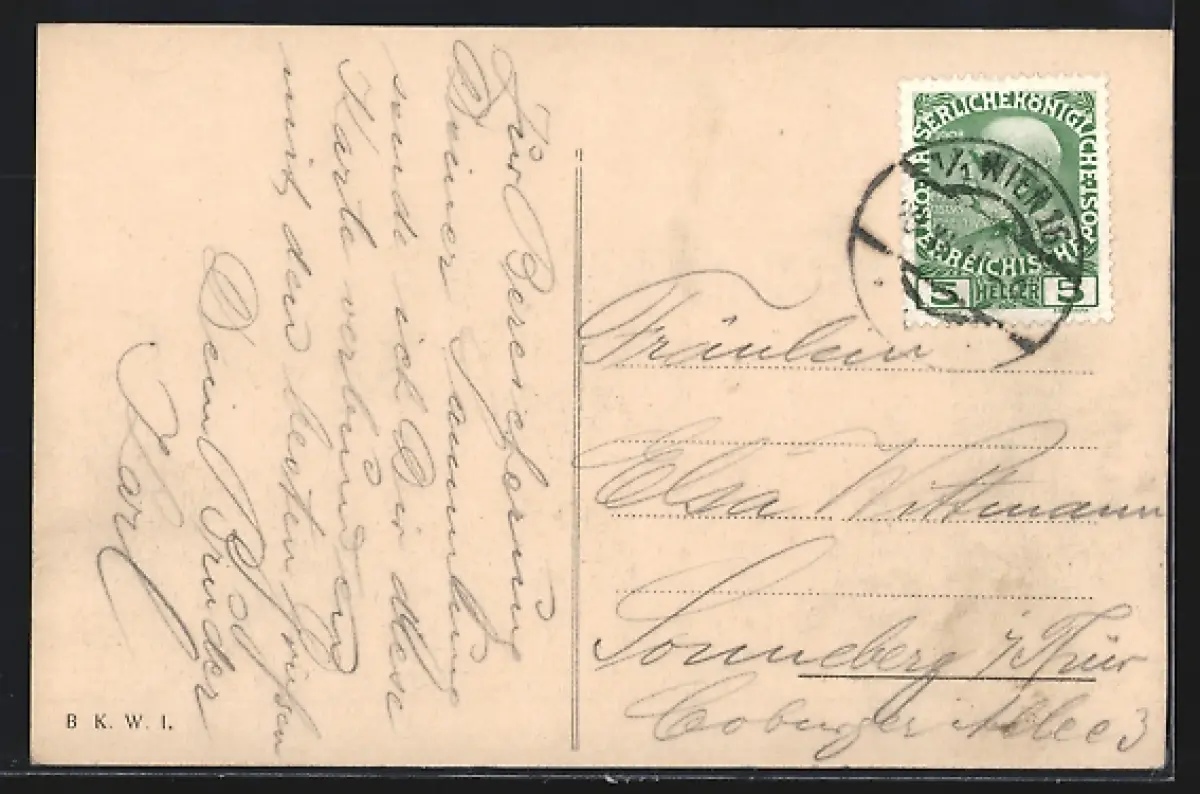 Zur Bereicherung
Deiner Sammlung
sende ich Dir diese
Karte verbunden
mit den besten Grüßen
Dein Bruder
Karl
B. K. W. I.
KAISERLICHEKÖNIGLICHE
ÖSTERREICHISCHE
1/1 WIEN 16
5 HELLER 5
Fräulein
Elsa Wittmann
Sonneberg i/Thür
Coburger Allee 3